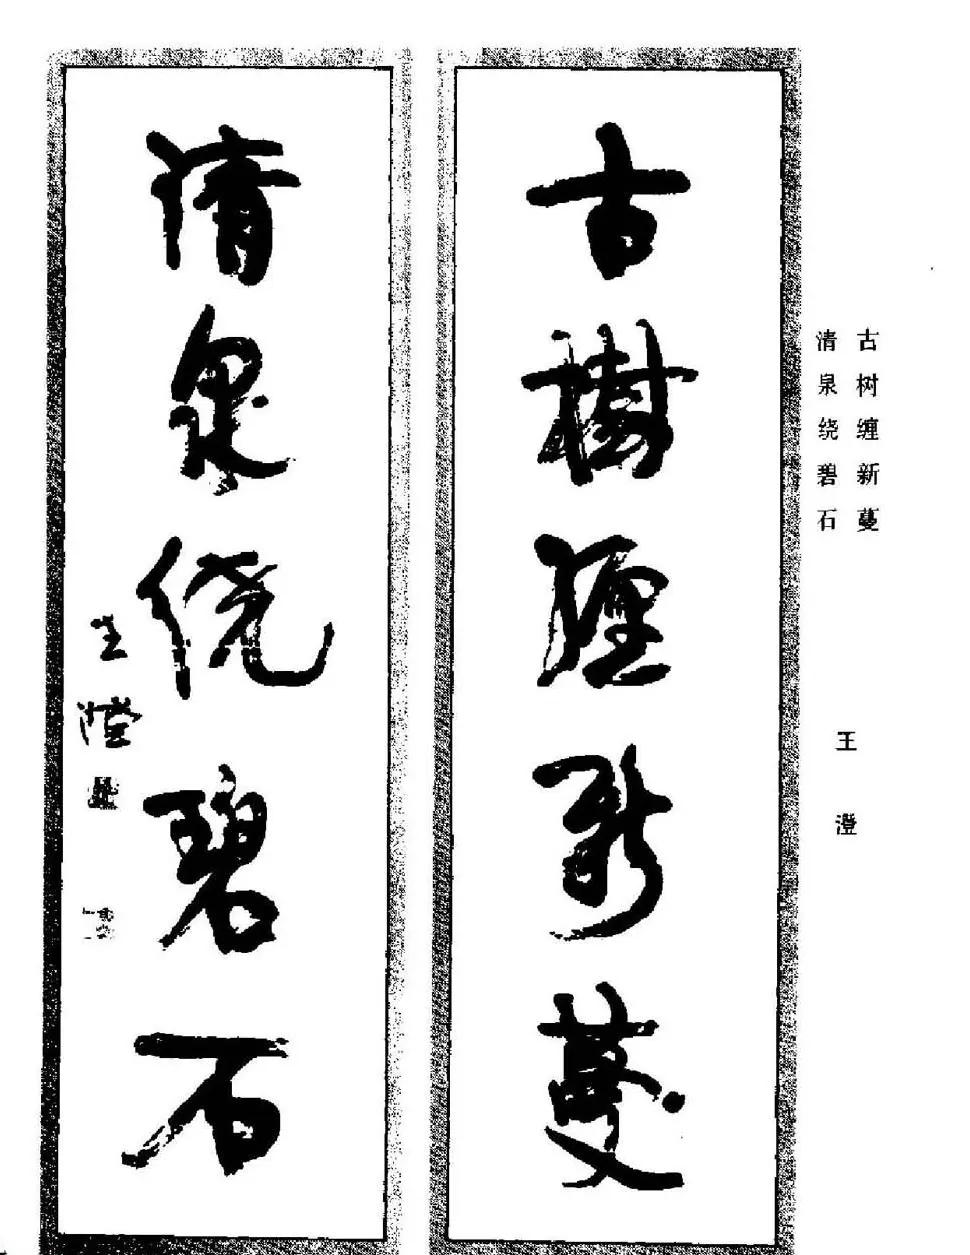 古树缠新蔓
清泉绕碧石
王澄
古樹纏新蔓
清泉繞碧石
王澄